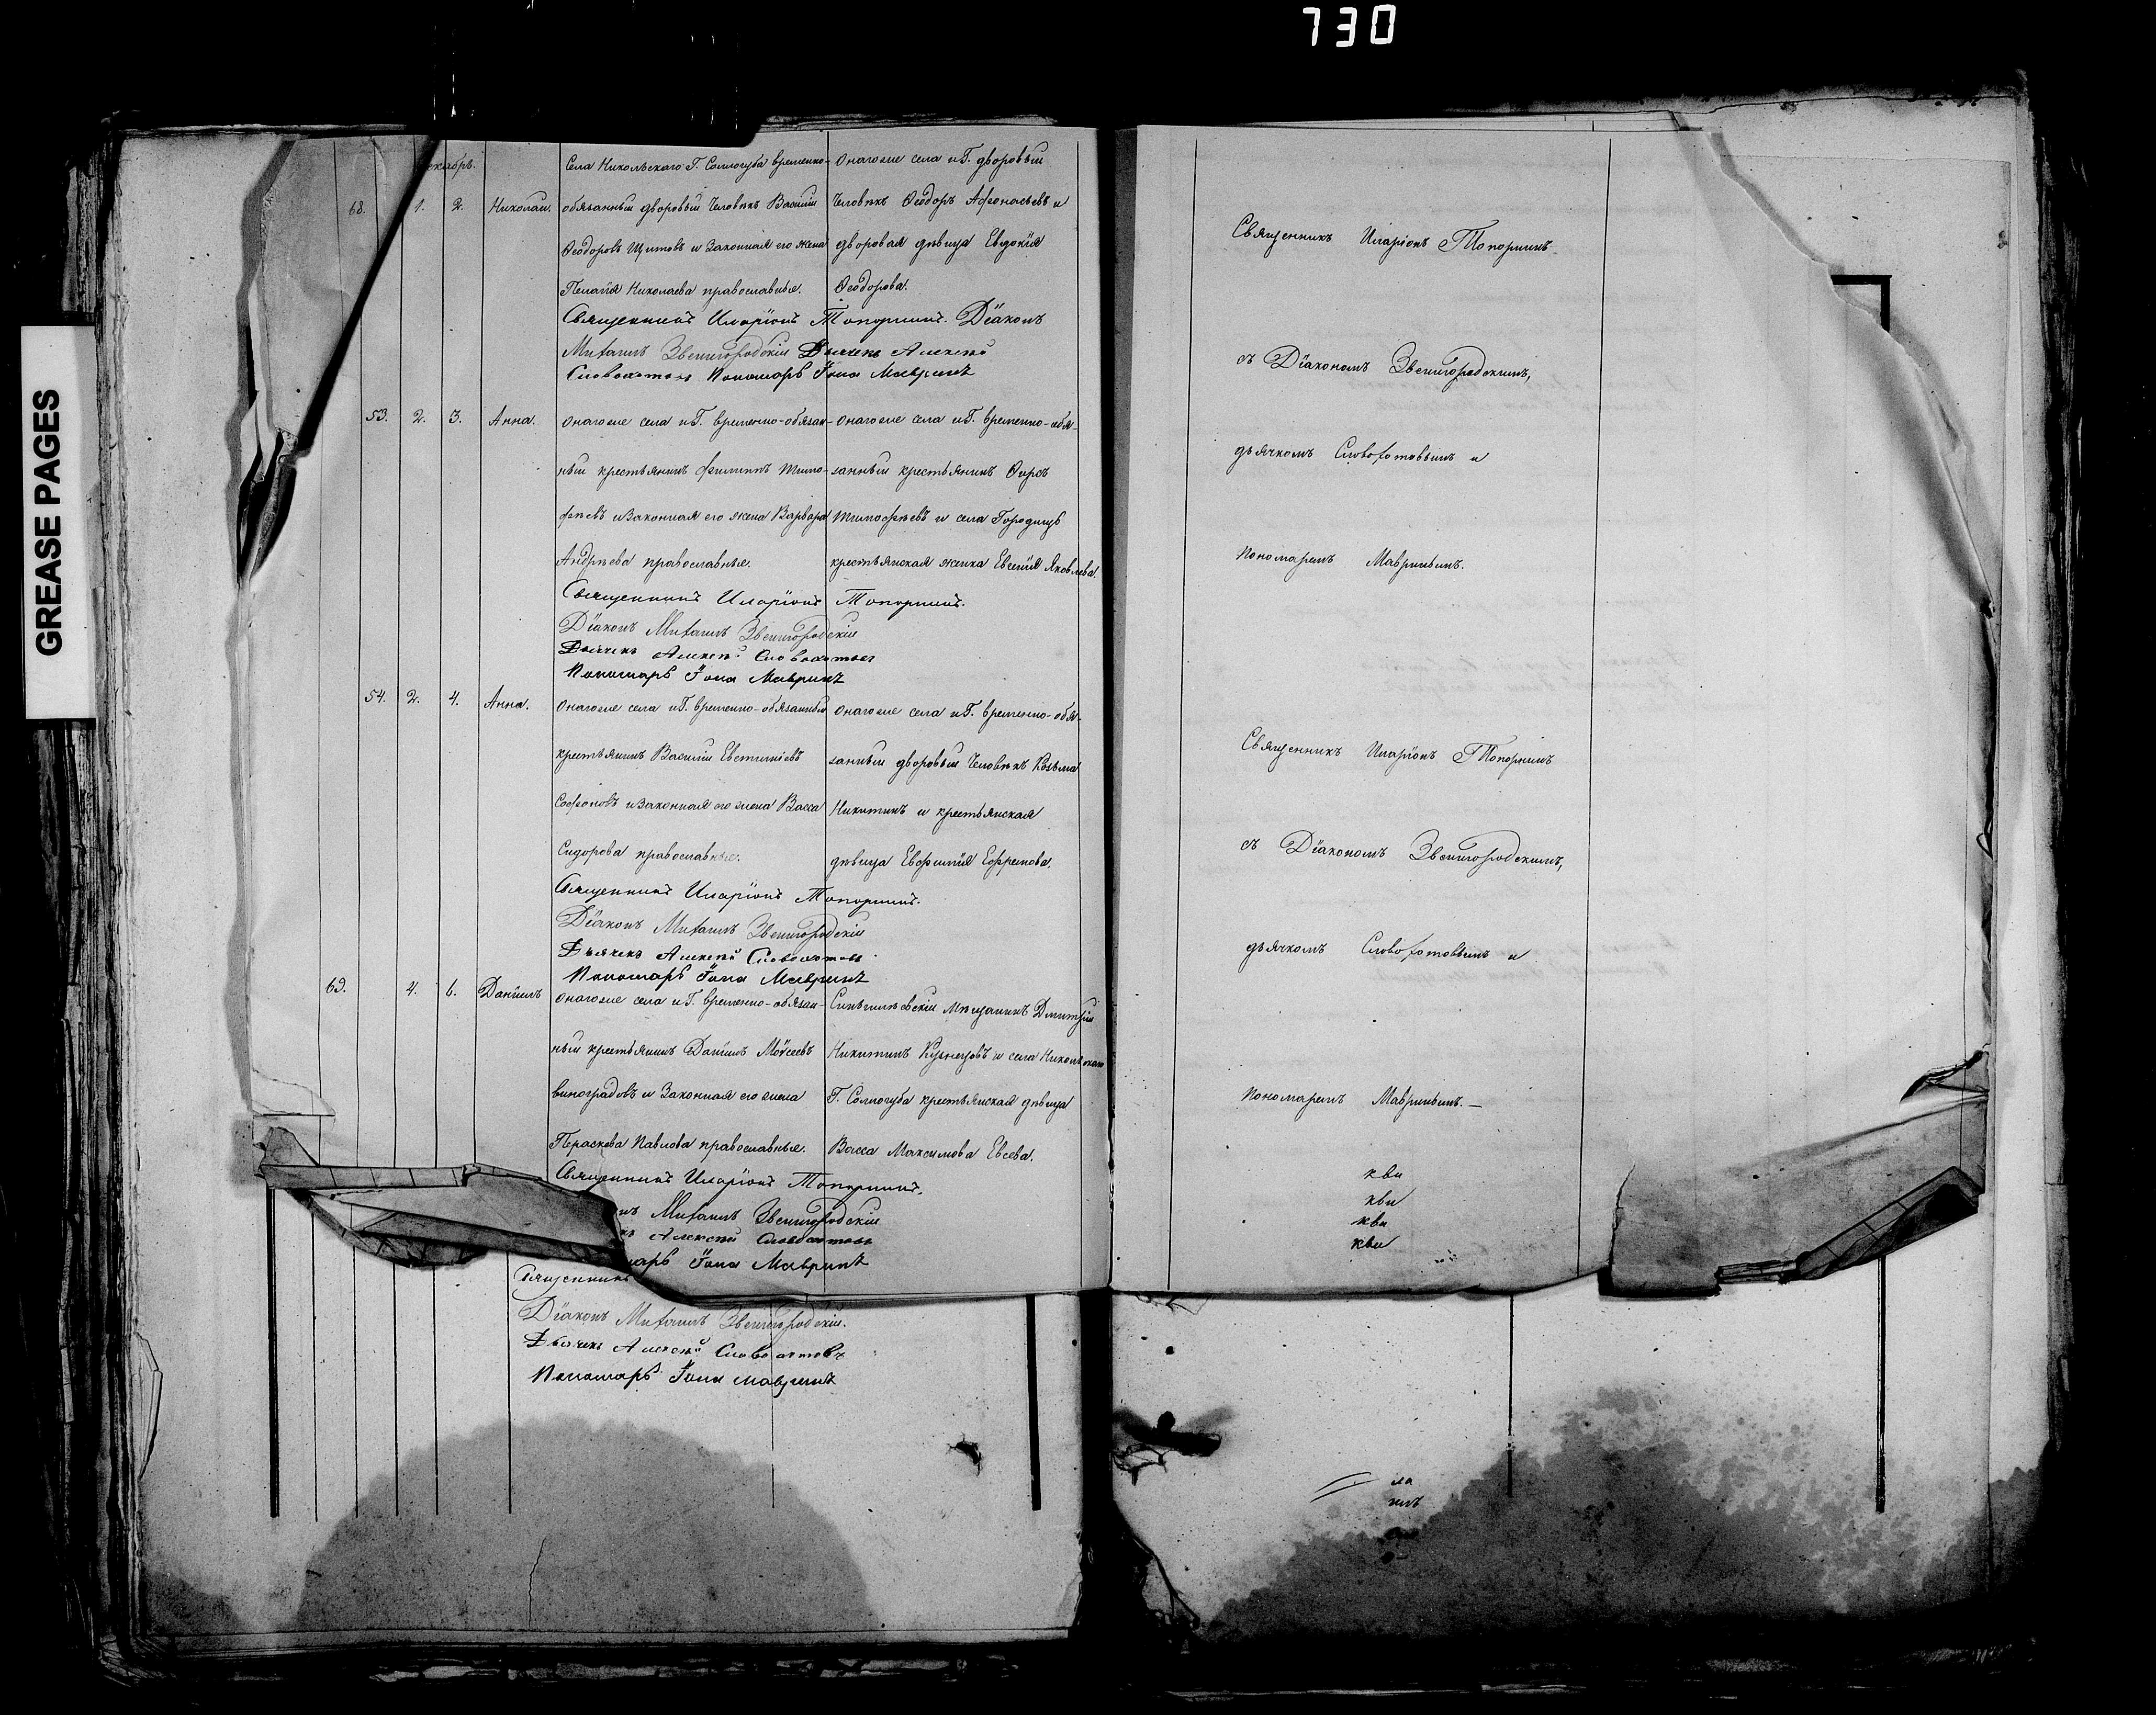 730
GREASE PAGES
екабрь.
68. 1. 2. Николай.
Села Никольскаго Г. Соллогуба временно-
обязанный дворовый человѣкъ Василій
Ѳеодоровъ Щитовъ и законная его жена
Пелагія Николаева православные.
Онагоже села и Г. дворовый
человѣкъ Ѳеодоръ Афонасьевъ и
дворовая дѣвица Евдокія
Ѳеодорова.
Священникъ Иларіонъ Топорнинъ. Діаконъ
Михаилъ Звенигородскій Дьячекъ Алексѣй
Словохотовъ Пономарь Іона Мавринъ
53. 2. 3. Анна.
Онагоже села и Г. временно-обязан-
ный крестьянинъ Филиппъ Тимо-
феевъ и законная его жена Варвара
Андрѣева православные.
Онагоже села и Г. временно-обя-
занный крестьянинъ Ѳирсъ
Тимофѣевъ и села Городищъ
крестьянская женка Евгенія Яковлева.
Священникъ Иларіонъ Топорнинъ.
Діаконъ Михаилъ Звенигородскій
Дьячекъ Алексѣй Словохотовъ
Пономарь Іона Мавринъ
54. 2. 4. Анна.
Онагоже села и Г. временно-обязанный
крестьянинъ Василій Евстигнѣевъ
Софоновъ и законная его жена Васса
Сидорова православные.
Онагоже села и Г. временно-обя-
занный дворовый человѣкъ Козьма
Никитинъ и крестьянская
дѣвица Евфимія Ефремова.
Священникъ Иларіонъ Топорнинъ.
Діаконъ Михаилъ Звенигородскій
Дьячекъ Алексѣй Словохотовъ
Пономарь Іона Мавринъ
69. 4. 6. Даніилъ
Онагоже села и Г. временно-обязан-
ный крестьянинъ Даніилъ Моѵсеевъ
виноградовъ и законная его жена
Параскева Павлова православные.
мѣщанинъ Дмитрій
Никитинъ Кузнецовъ и села Никольскаго
Г. Соллогуба крестьянская дѣвица
Васса Максимова Евсеева.
Священникъ Иларіонъ Топорнинъ.
нъ Михаилъ Звенигородскій
къ Алексѣй Словохотовъ
марь Іона Мавринъ
Священникъ
Діаконъ Михаилъ Звенигородскій.
Дьячекъ Алексѣй Словохотовъ
Пономарь Іона Мавринъ
Священникъ Иларіонъ Топорнинъ
съ Діакономъ Звенигородскимъ,
дьячкомъ Словохотовымъ и
Пономаремъ Мавринымъ.
Священникъ Иларіонъ Топорнинъ
съ Діакономъ Звенигородскимъ,
дьячкомъ Словохотовымъ и
Пономаремъ Мавринымъ.—
кви
кви
кви
кви
ла